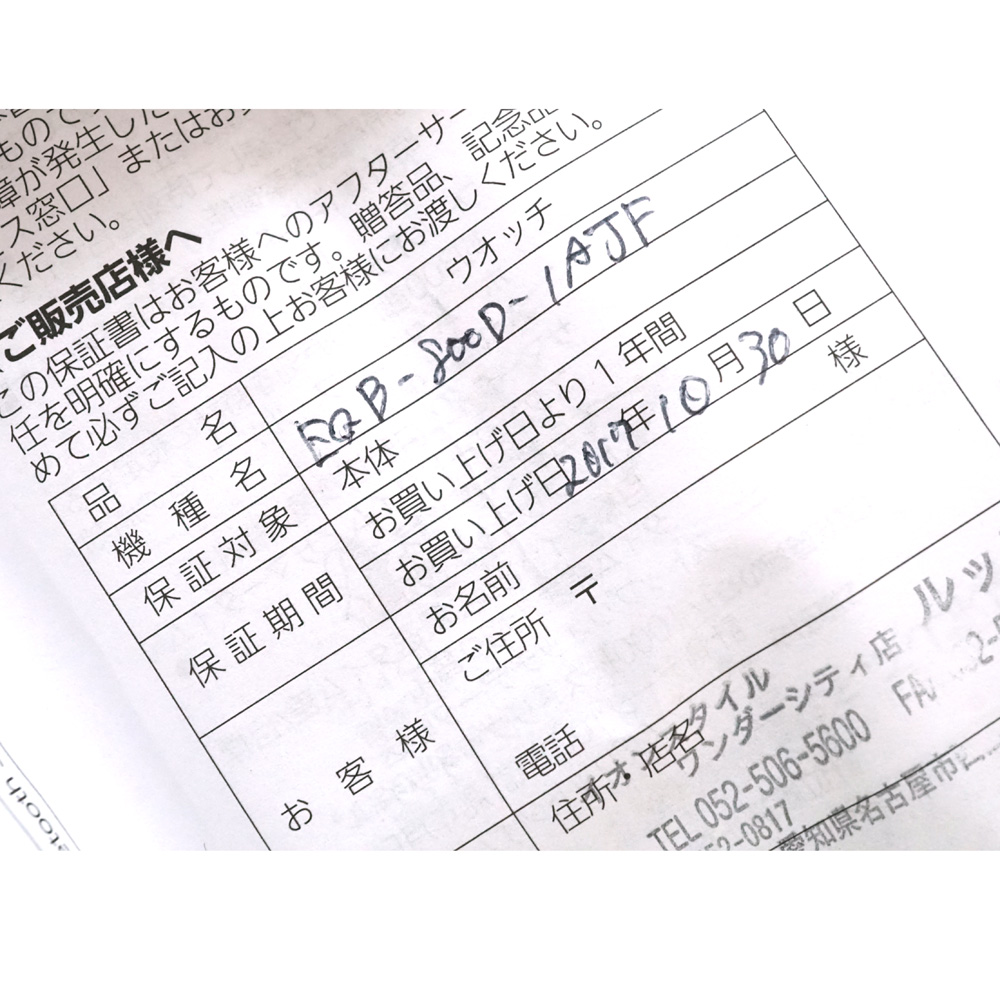 もので
障が発生した
ス窓口」またはお
ください。
ご販売店様へ
この保証書はお客様へのアフターサー
任を明確にするものです。贈答品、記念品
めて必ずご記入の上お客様にお渡しください。
品名 ウオッチ
機種名 EQB-800D-1AJF
保証対象 本体
保証期間 お買い上げ日より1年間
お買い上げ日2017年10月30日
お客様 お名前 様
ご住所 〒
電話
住所・店名
タイル ルッ
ワンダーシティ店
TEL 052-506-5600 FA
52-0817
愛知県名古屋市
etooth